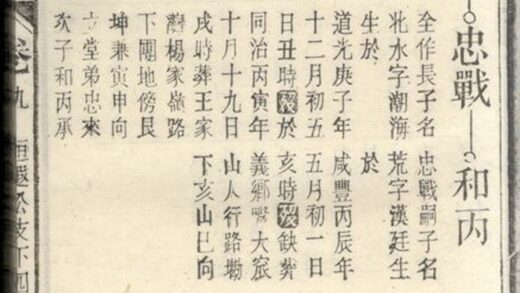 忠戰
全作長子名
水字潮海
生於
道光庚子年
十二月初五
日丑時歿於
同治丙寅年
十月十九日
戌時葬王家
楊家嶺路
下圍地傍艮
坤兼寅申向
立堂弟忠來
次子和丙承
和丙
忠戰嗣子名
荒字漢廷生
於
咸豐丙辰年
五月初一日
亥時歿缺葬
義鄉嘴大
山人行路墈
下亥山巳向
卷九
還公支下四